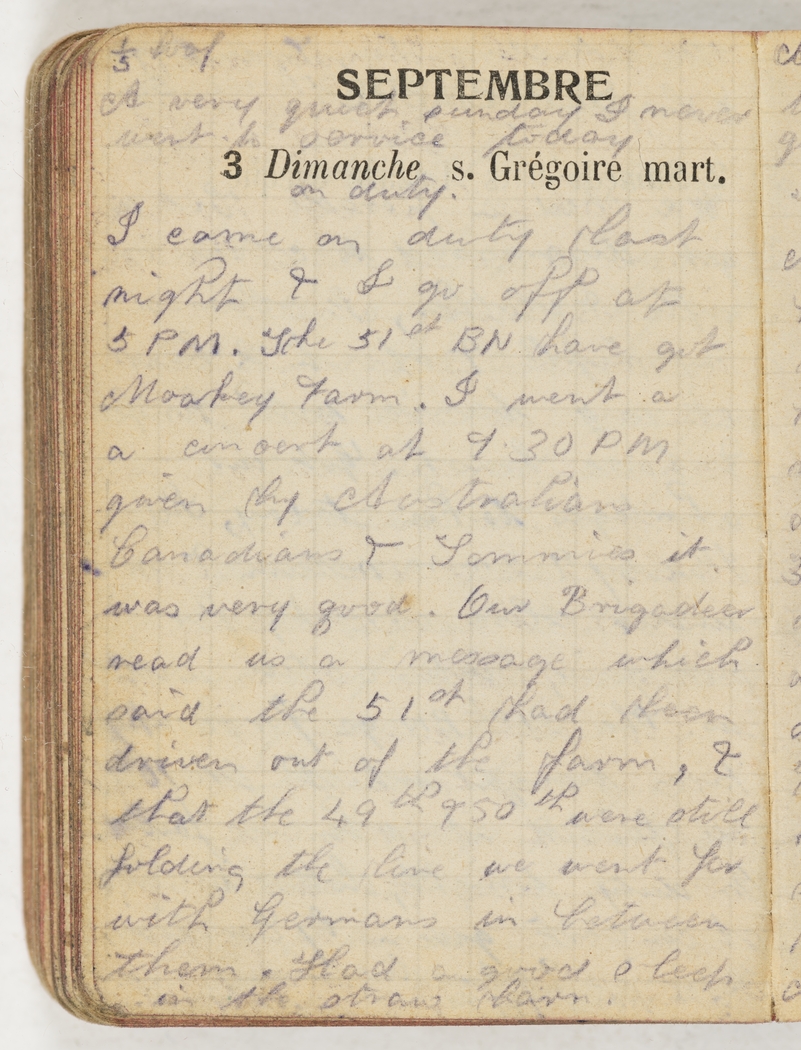 1/5 loaf
SEPTEMBRE
A very quiet sunday I never
went to service today
3 Dimanche s. Grégoire mart.
on duty.
I came on duty last
night & I go off at
5 PM. The 51st BN have got
Moakey Farm. I went a
a concert at 7.30 PM
given by Australians
Canadians & Tommies it
was very good. Our Brigadeer
read us a message which
said the 51st had been
driven out of the farm, &
that the 49th & 50th were still
holding the line we went for
with Germans in between
them. Had a good sleep
in the straw barn.